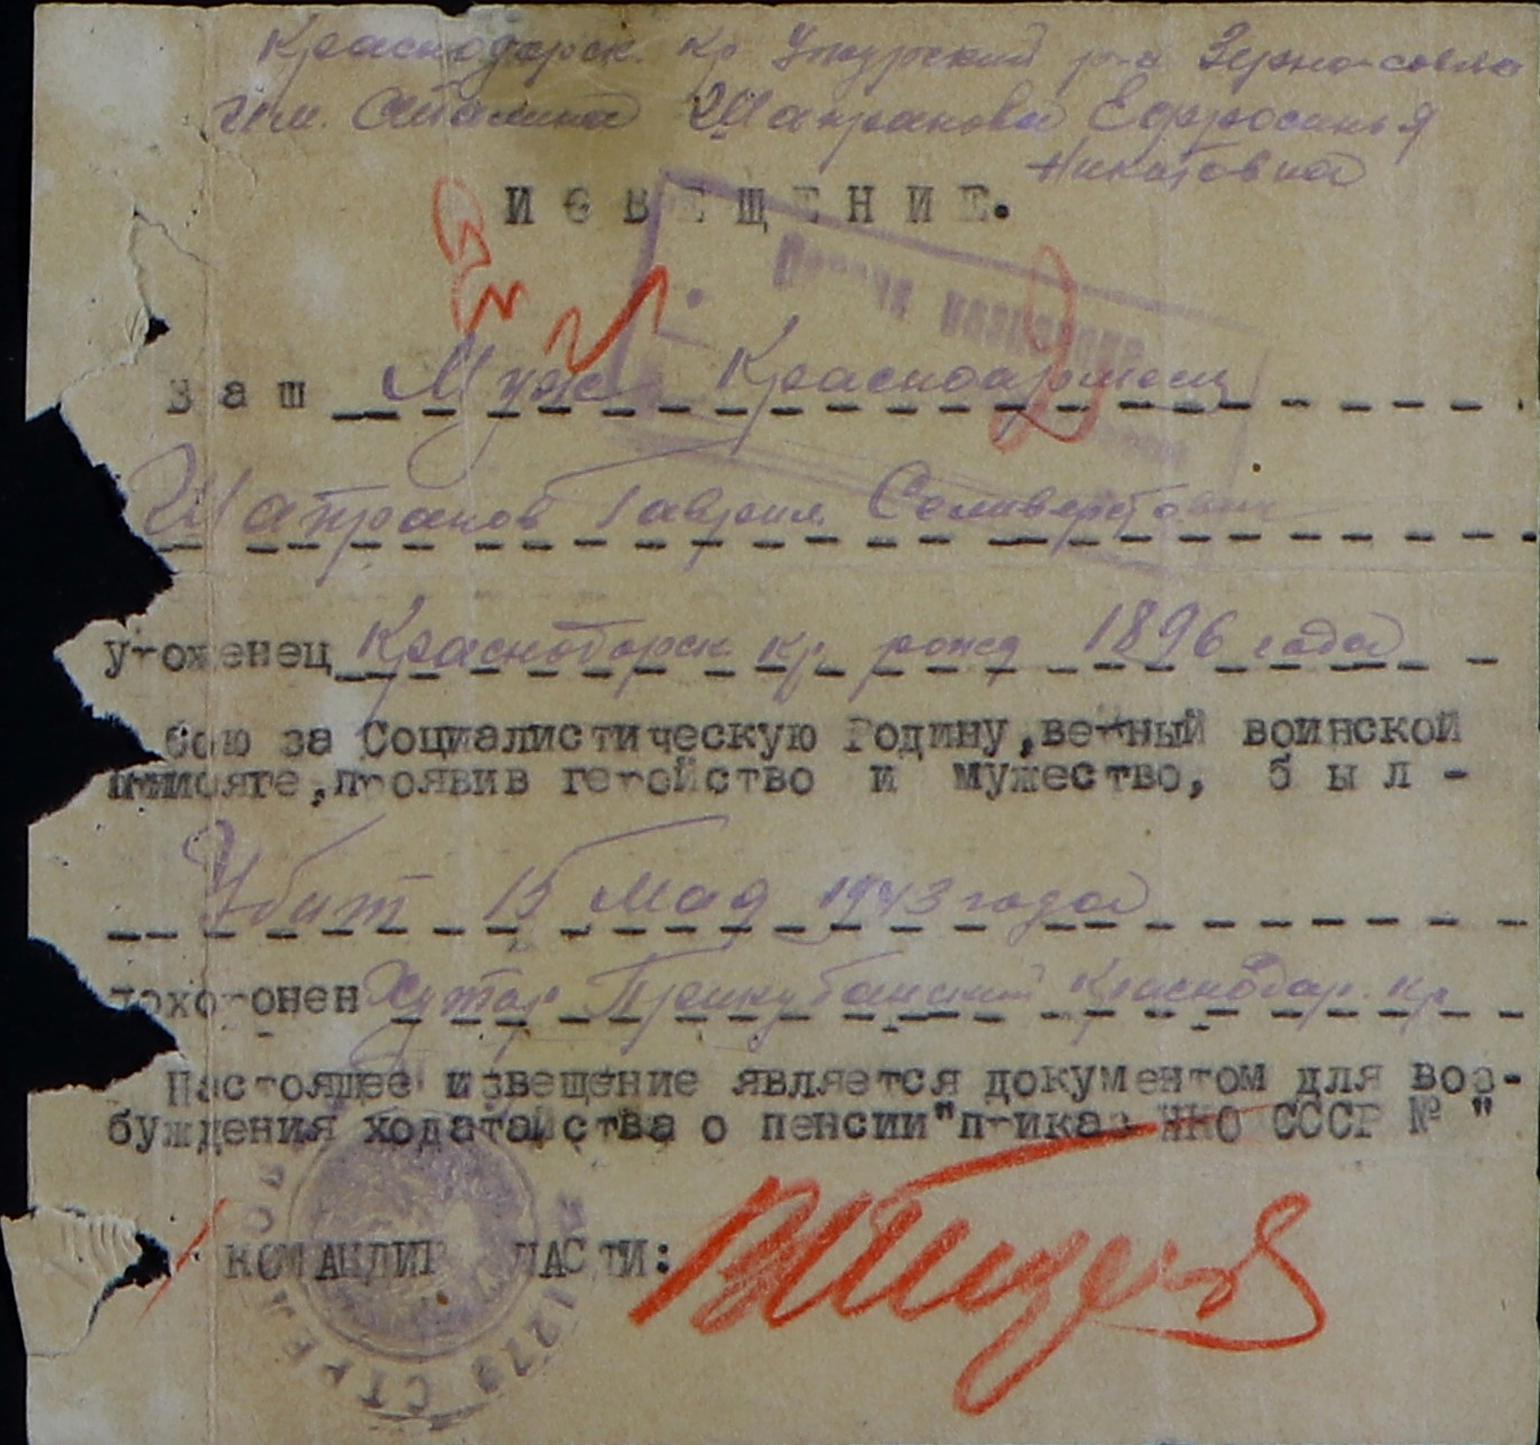 Краснодарск. кр р-н Зерно-совхо
им. Сталина Шапранова Ефросинья
Никитовна
ИЗВЕЩЕНИЕ.
Ваш Муж Красноармеец
Шапранов Гаврил Селиверстович
уроженец Краснодарск. кр. рожд 1896 года
бою за Социалистическую Родину, верный воинской
присяге, проявив геройство и мужество, был -
Убит 15 Мая 1943 года
похоронен Хутор Прикубанский Краснодар. кр
Настоящее извещение является документом для воз-
буждения ходатайства о пенсии "приказ НКО СССР № "
КОМАНДИР ЧАСТИ: